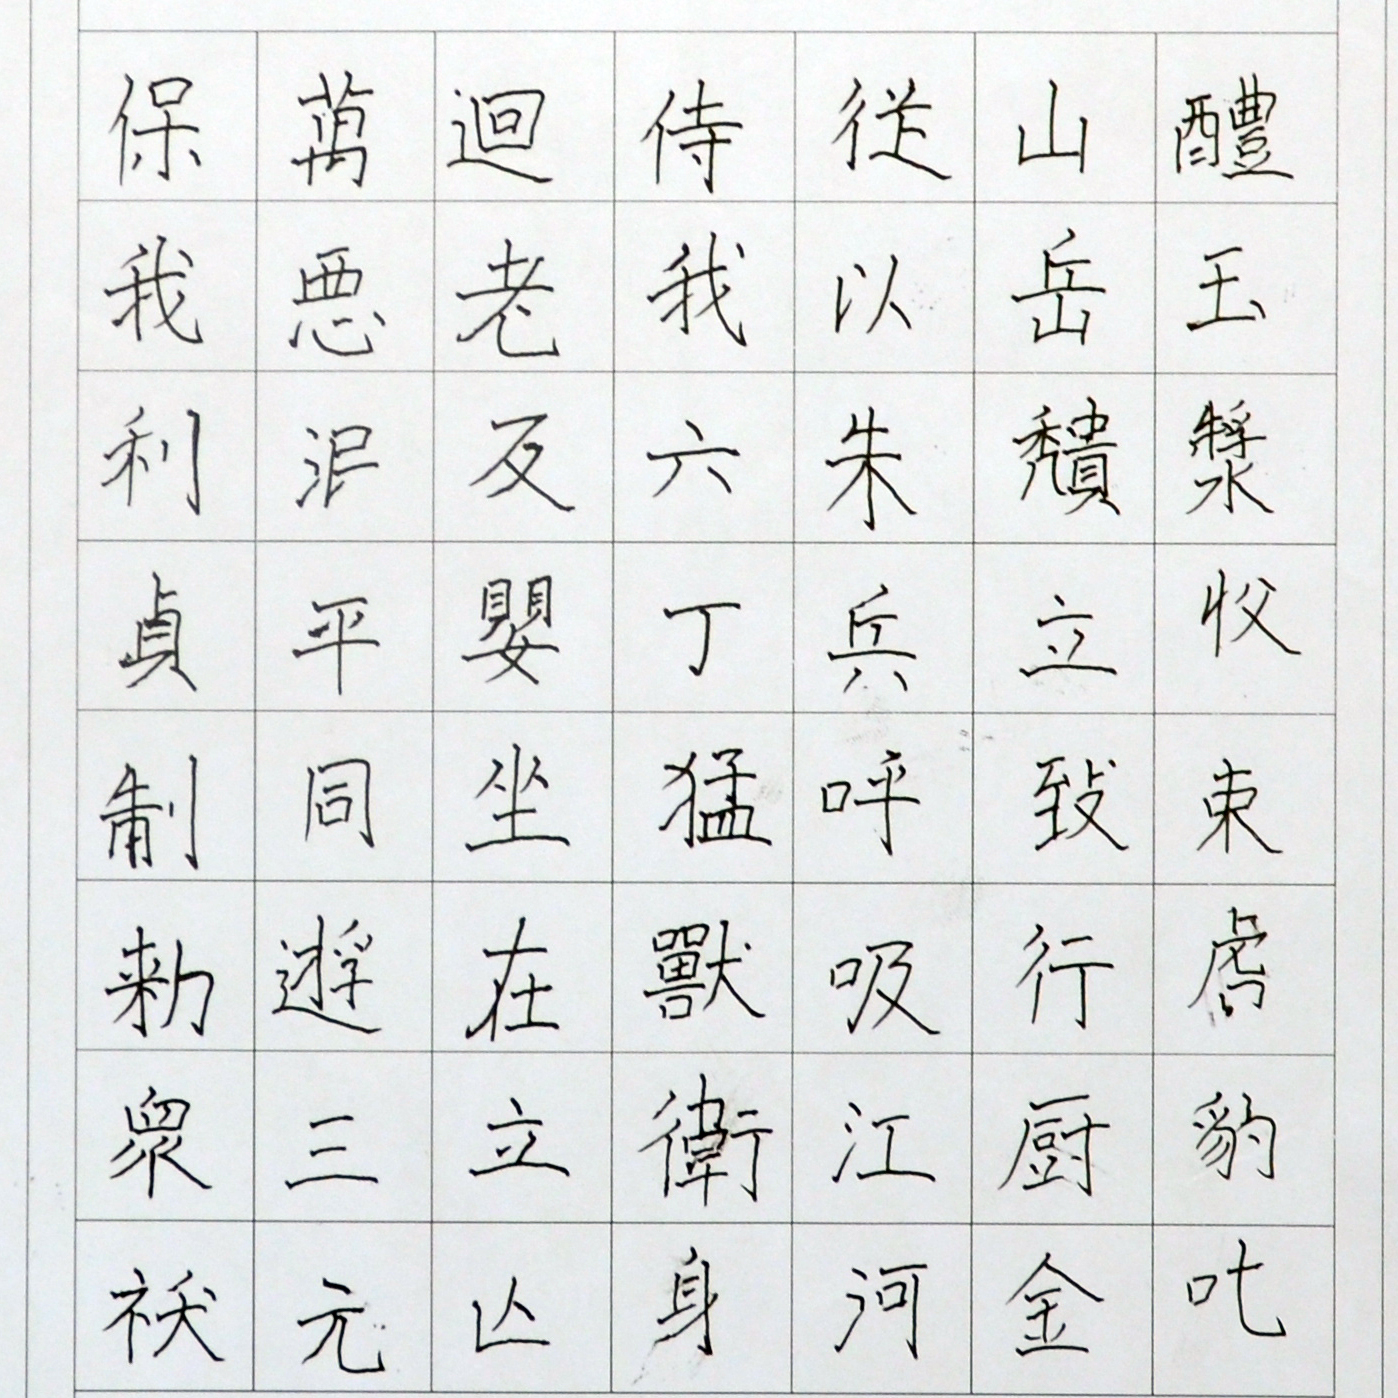 醴玉漿收束虎豹叱
山岳穨立致行厨金
従以朱兵呼吸江河
侍我六丁猛獸衛身
迴老反嬰坐在立亾
萬悪泯平同遊三元
保我利貞制勑眾祅